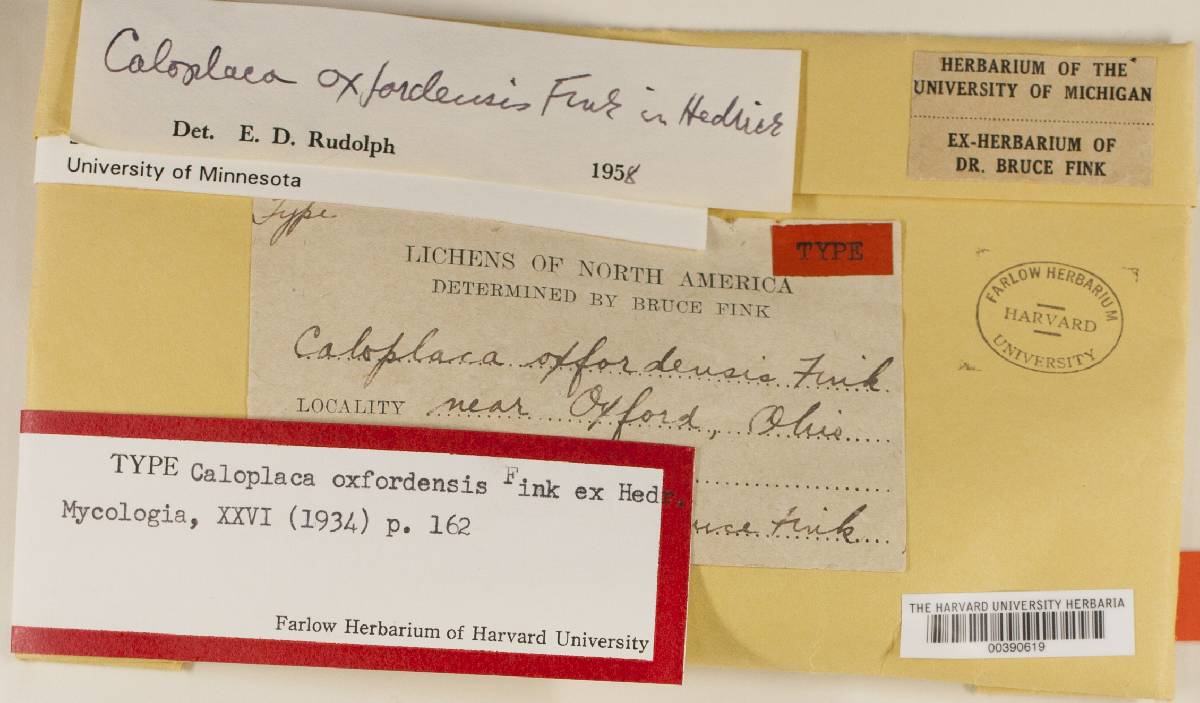 Caloplaca oxfordensis Fink in Hedrick
Det. E. D. Rudolph 1958
University of Minnesota
HERBARIUM OF THE
UNIVERSITY OF MICHIGAN
EX-HERBARIUM OF
DR. BRUCE FINK
Type
TYPE
LICHENS OF NORTH AMERICA
DETERMINED BY BRUCE FINK
Caloplaca oxfordensis Fink
LOCALITY near Oxford, Ohio
Fink
FARLOW HERBARIUM
HARVARD
UNIVERSITY
TYPE Caloplaca oxfordensis Fink ex Hedr.
Mycologia, XXVI (1934) p. 162
Farlow Herbarium of Harvard University
THE HARVARD UNIVERSITY HERBARIA
00390619